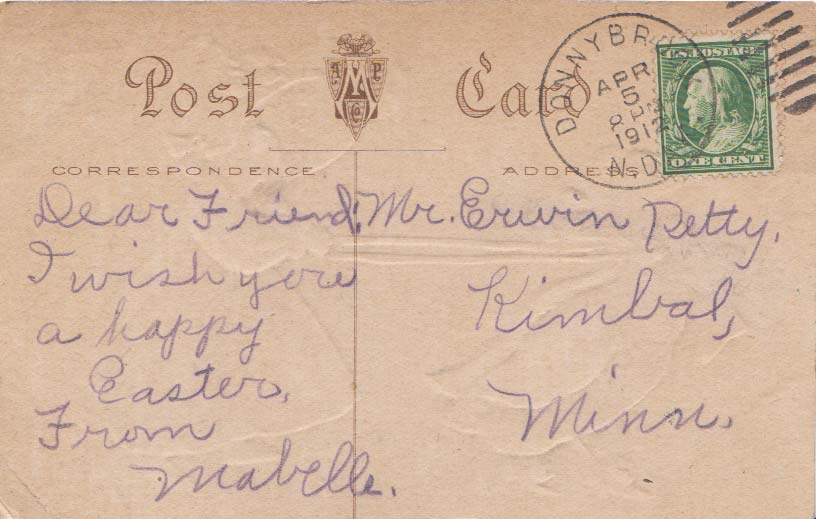 Post Card
CORRESPONDENCE
ADDRESS
DONNYBR
APR
5
1912
N.D.
U.S. POSTAGE
ONE CENT
Dear Friend:
I wish you
a happy
Easter,
From
Mabelle.
Mr. Erwin Petty,
Kimbal,
Minn.